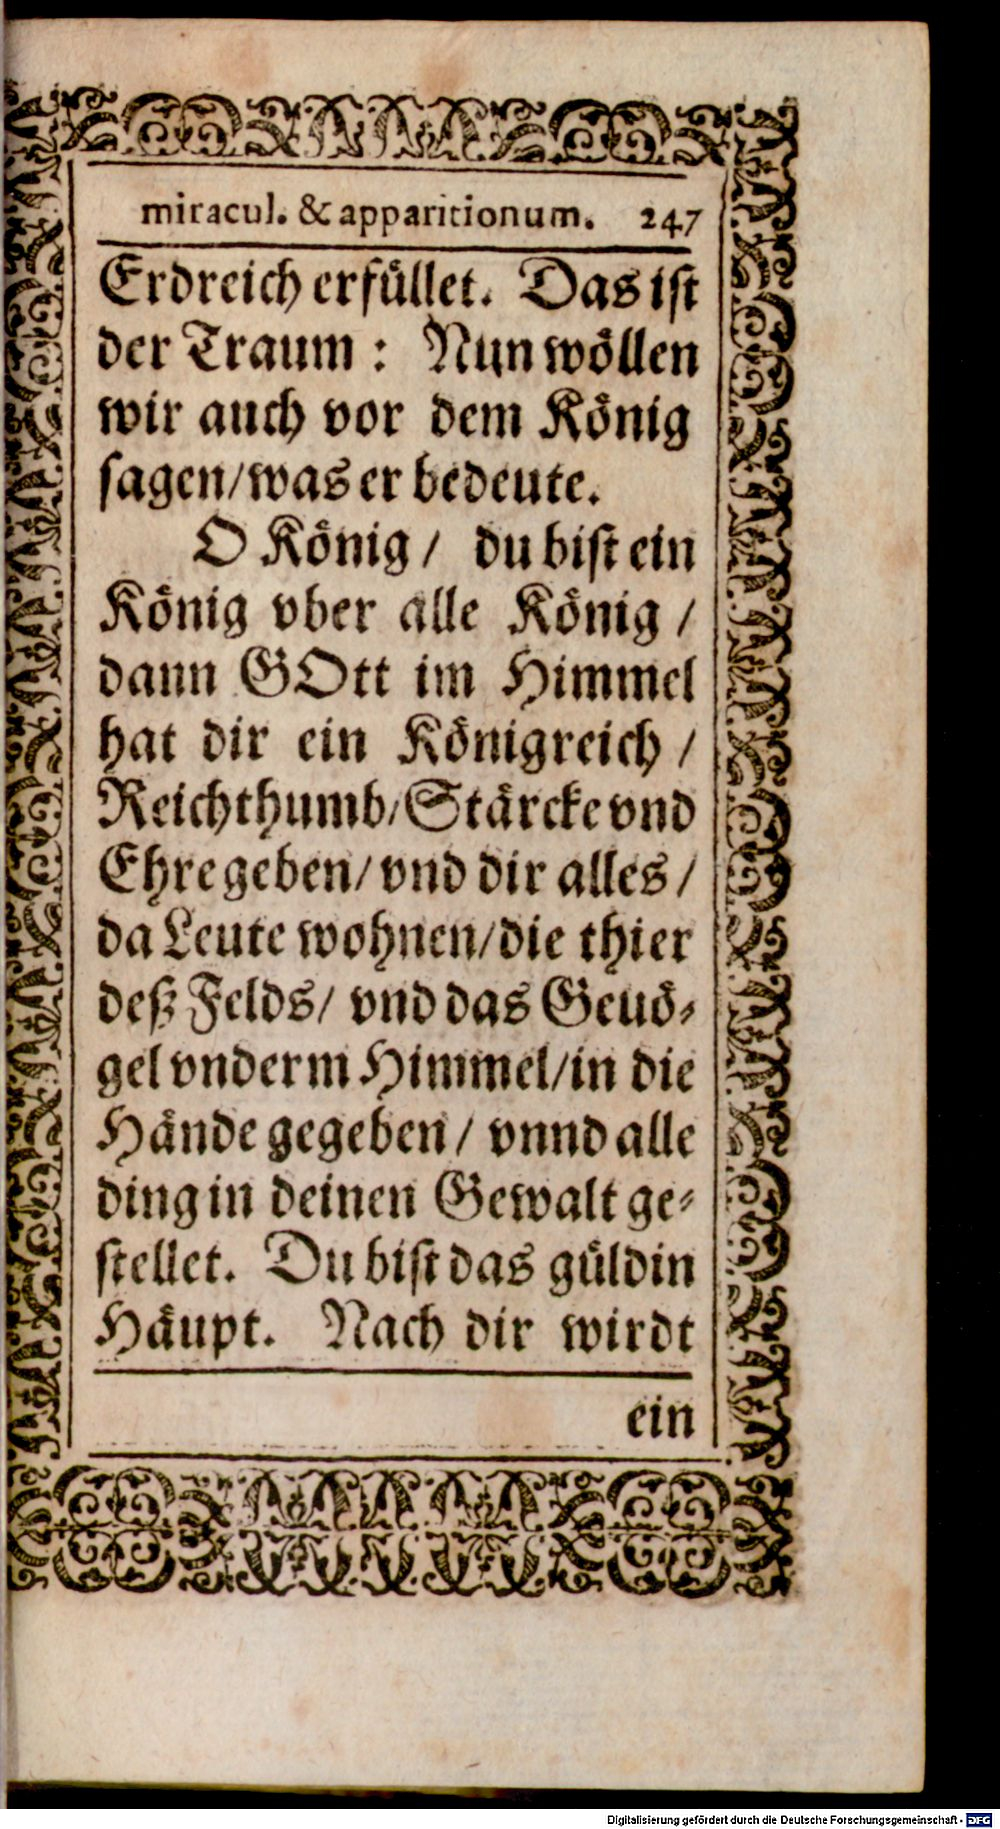 miracul. & apparitionum. 247
Erdreich erfüllet. Das ist
der Traum: Nun wöllen
wir auch vor dem König
sagen/was er bedeute.
O König/ du bist ein
König vber alle König/
dann GOtt im Himmel
hat dir ein Königreich/
Reichthumb/Stärcke vnd
Ehre geben/ vnd dir alles/
da Leute wohnen/die thier
deß Felds/ vnd das Gevö-
gel vnderm Himmel/in die
Hände gegeben/ vnnd alle
ding in deinen Gewalt ge-
stellet. Du bist das güldin
Häupt. Nach dir wirdt
ein
Digitalisierung gefördert durch die Deutsche Forschungsgemeinschaft - DFG